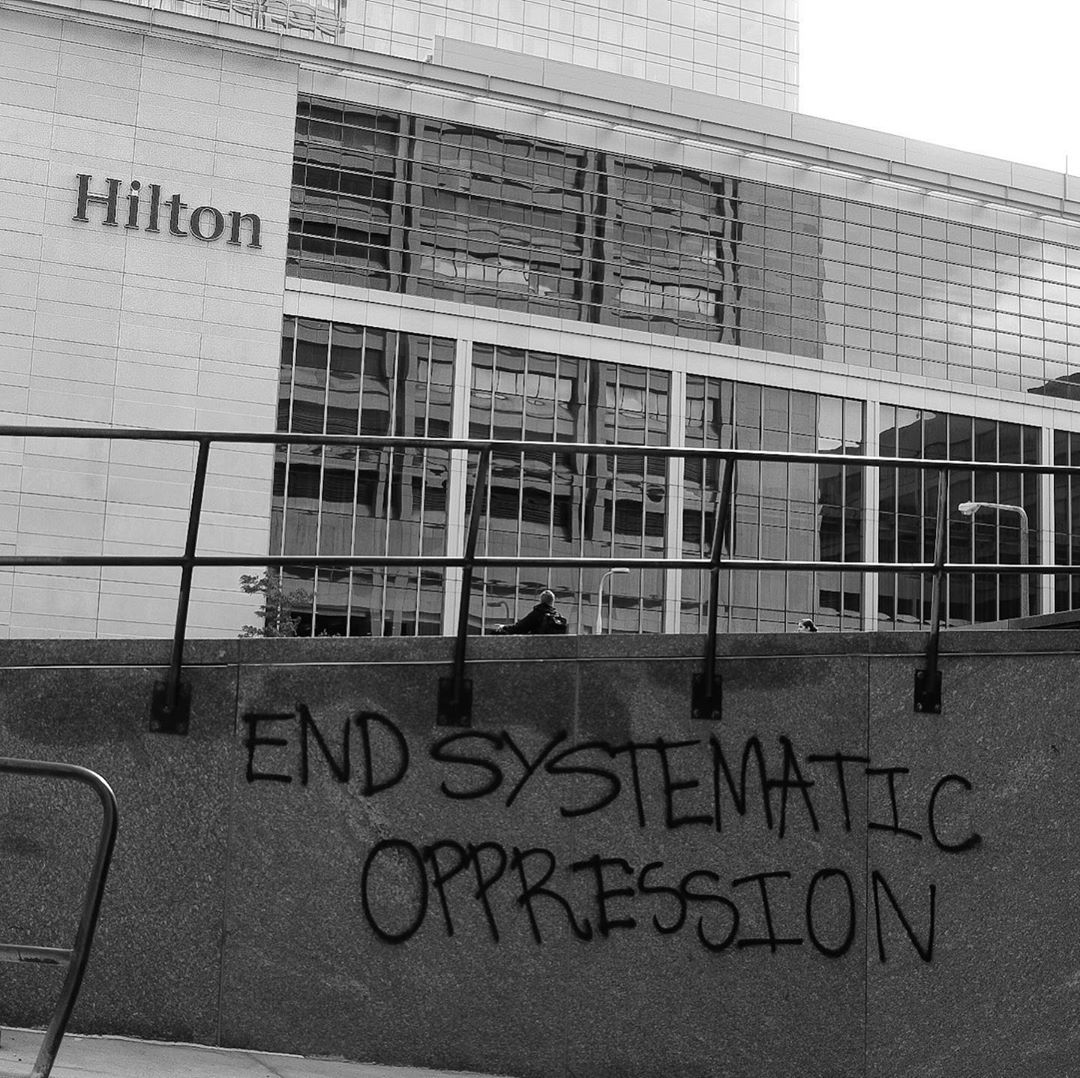 Hilton
END SYSTEMATIC
OPPRESSION